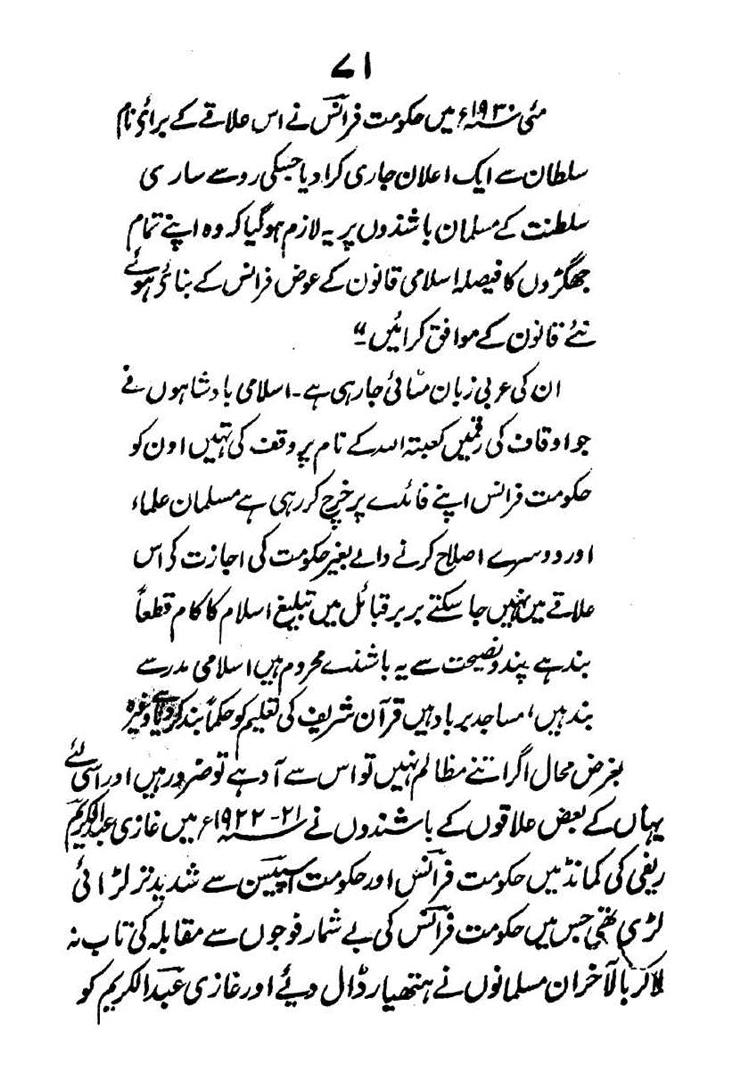 ۷۱
مئی سنہ ۱۹۳۰ء میں حکومت فرانس نے اس علاقے کے برائے نام
سلطان سے ایک اعلان جاری کرا دیا جسکی رو سے ساری
سلطنت کے مسلمان باشندوں پر یہ لازم ہوگیا کہ وہ اپنے تمام
جھگڑوں کا فیصلہ اسلامی قانون کے عوض فرانس کے بنائے ہوئے
نئے قانون کے موافق کرائیں۔"
ان کی عربی زبان مٹائی جا رہی ہے۔ اسلامی بادشاہوں نے
جو اوقاف کی رقمیں کعبتہ اللہ کے نام پر وقف کی تہیں اون کو
حکومت فرانس اپنے فائدے پر خرچ کر رہی ہے مسلمان علماء
اور دوسرے اصلاح کرنے والے بغیر حکومت کی اجازت کی اس
علاقے میں نہیں جا سکتے بربر قبائل میں تبلیغ اسلام کا کام قطعاً
بند ہے پند و نصیحت سے یہ باشندے محروم ہیں اسلامی مدرسے
بند ہیں، مساجد برباد ہیں قرآن شریف کی تعلیم کو حکماً بند کر دیا ہے وغیرہ
بغرض محال اگر اتنے مظالم نہیں تو اس سے آدہے تو ضرور ہیں اور اسی لئے
یہاں کے بعض علاقوں کے باشندوں نے سنہ ۲۱-۱۹۲۲ء میں غازی عبدالکریم
ریفی کی کمانڈ میں حکومت فرانس اور حکومت اسپین سے شدید تر لڑائی
لڑی تھی جس میں حکومت فرانس کی بے شمار فوجوں سے مقابلہ کی تاب نہ
لا کر بالآخر ان مسلمانوں نے ہتھیار ڈال دیئے اور غازی عبدالکریم کو